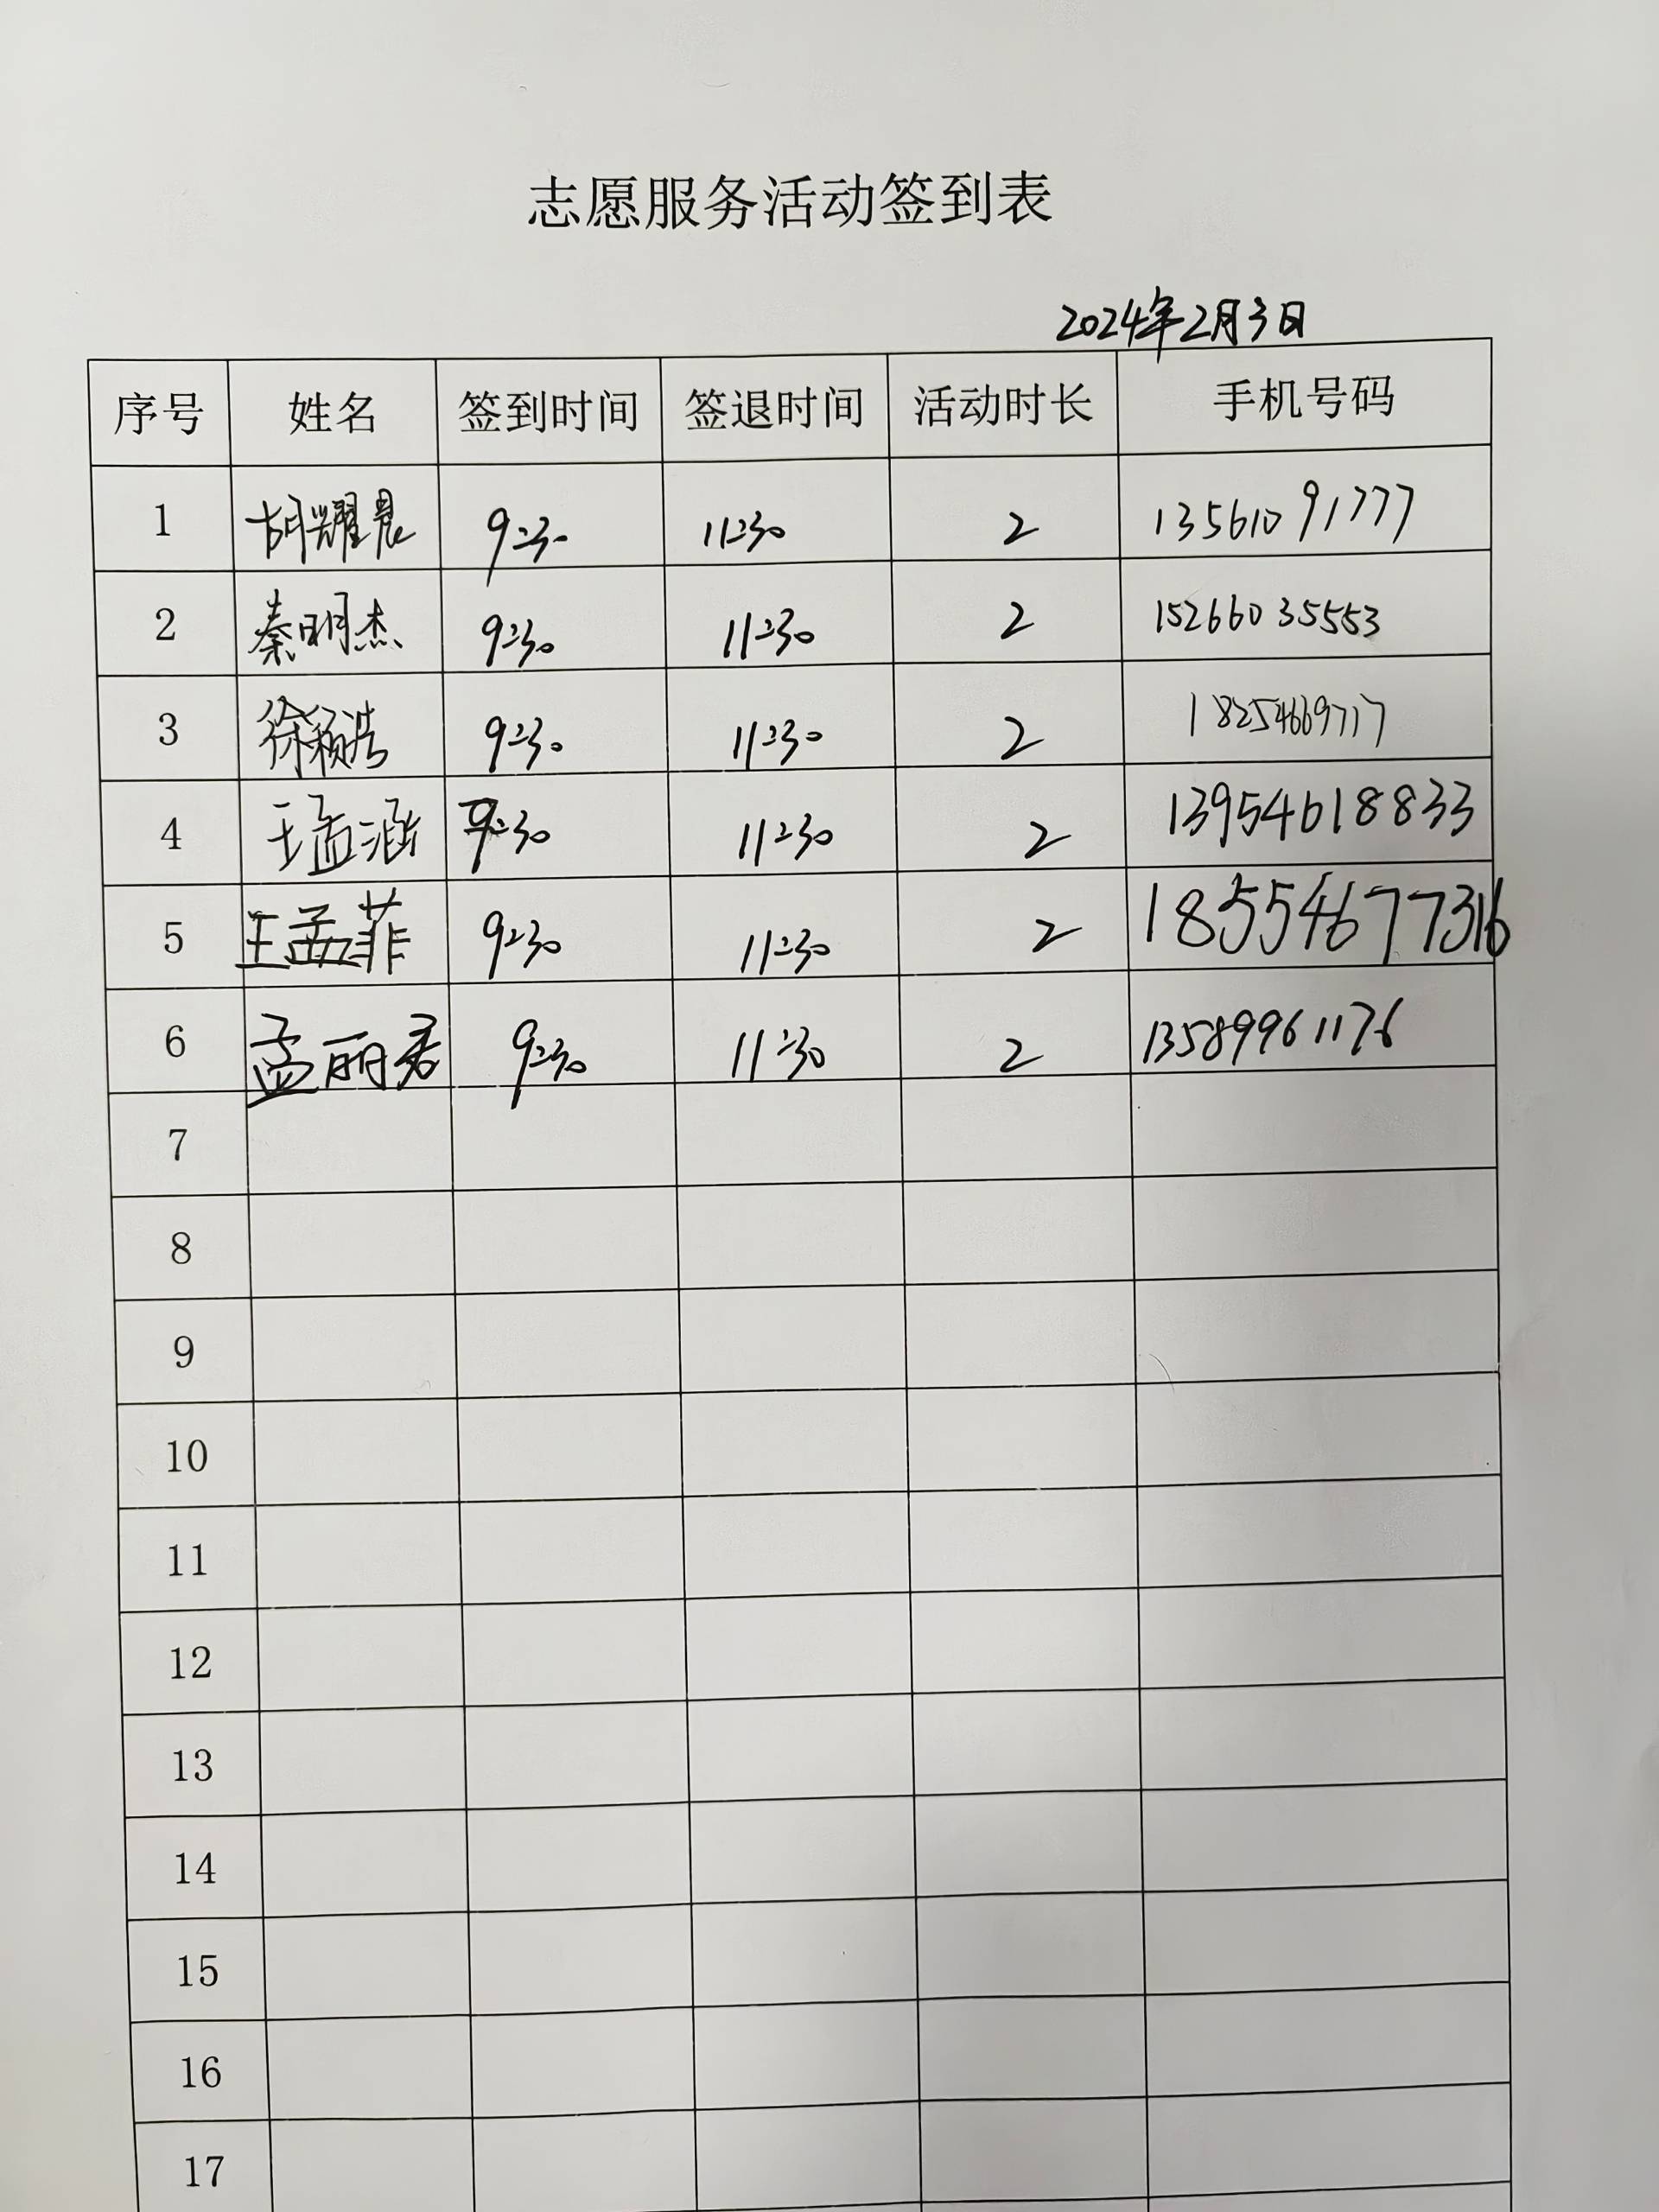 志愿服务活动签到表
2024年2月3日
序号 姓名 签到时间 签退时间 活动时长 手机号码
1 胡耀晨 9:30 11:30 2 13561091777
2 秦明杰 9:30 11:30 2 15266035553
3 徐颖浩 9:30 11:30 2 18254669717
4 王孟涵 9:30 11:30 2 13954618833
5 王孟菲 9:30 11:30 2 18554677316
6 孟丽君 9:30 11:30 2 13589961176
7
8
9
10
11
12
13
14
15
16
17